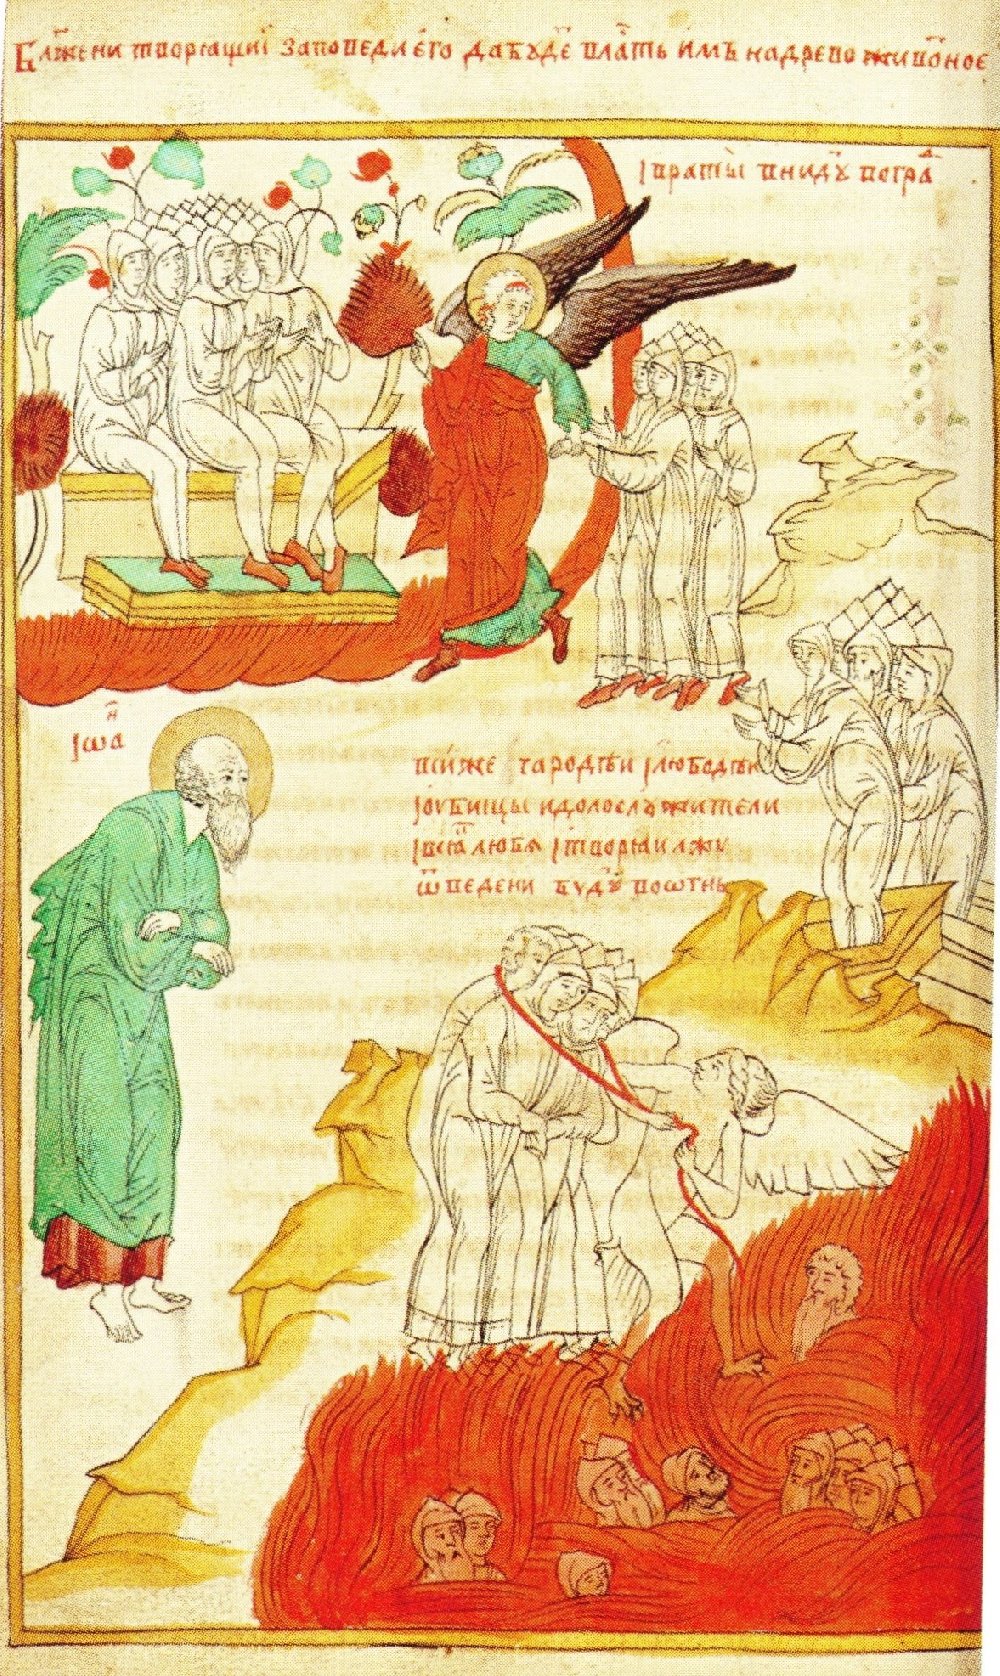 Бл҃жени творѧщиї заповеди его да бꙋде҇ вла҇ть имъ на древо живо҇ное
І враты внидꙋ҇ во гра҇д
Іѡа҇н
пси же чародѣи і любодѣи
і оубиицы идолослꙋжители
і всѧ҇к любѧ і творѧи лжꙋ
ѿведени бꙋдꙋ҇ во ѡгнь